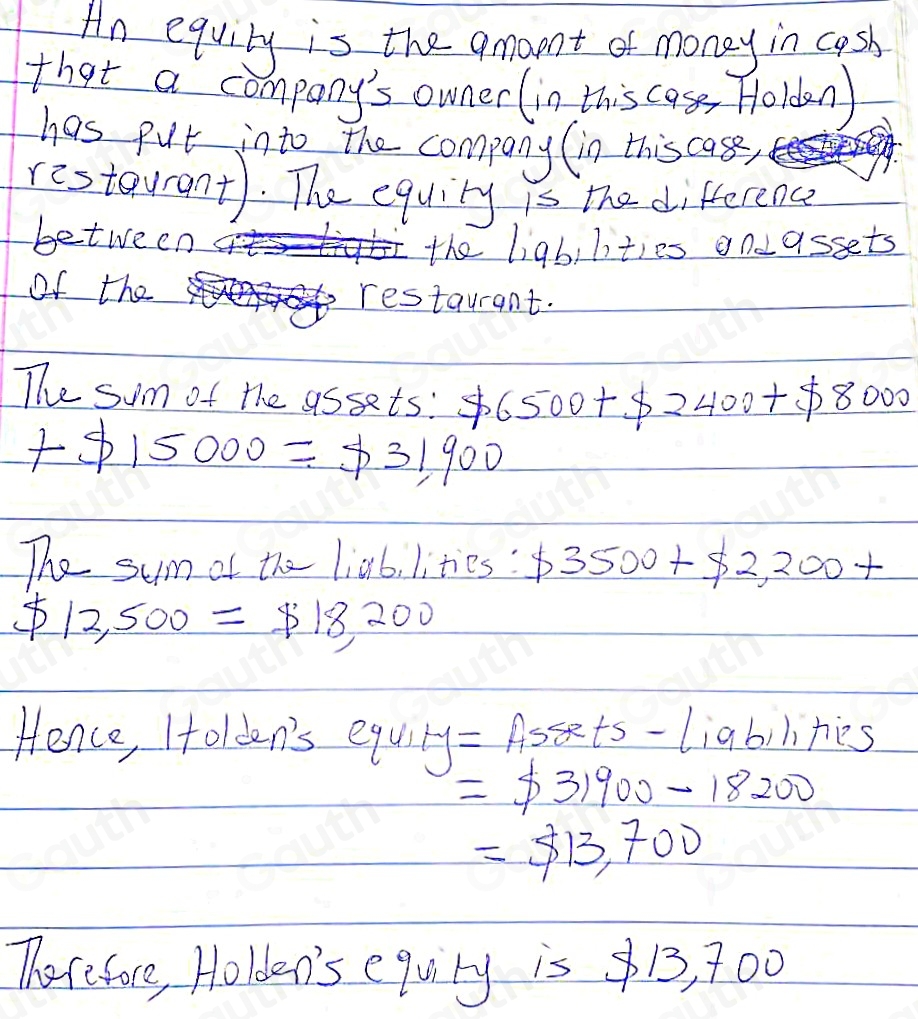 An equity is the amount of money in cash
that a company's owner (in this case, Holden)
has put into the company (in this case,
restaurant). The equity is the difference
between the liabilities and assets
of the restaurant.
The sum of the assets: $6500 + $2400 + $8000
+ $15000 = $31,900
The sum of the liabilities: $3500 + $2,200 +
$12,500 = $18,200
Hence, Holden's equity = Assets - Liabilities
= $31900 - 18200
= $13,700
Therefore, Holden's equity is $13,700